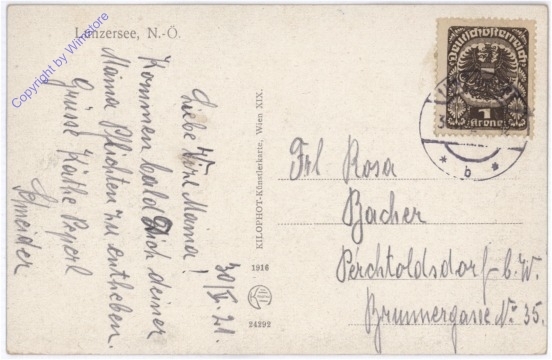 Lunzersee, N.-Ö.
Copyright by Winstore
30/V. 21.
Liebe Mama!
Kommen bald Dich deiner
Mama Pflichten zu entheben.
Grüsse Käthe
Schneider
KILOPHOT-Künstlerkarte, Wien XIX.
1916
24292
Deutschösterreich
1
Krone
* b *
Frl Rosa
Bacher
Perchtoldsdorf b. W.
Brunnergasse No. 35.